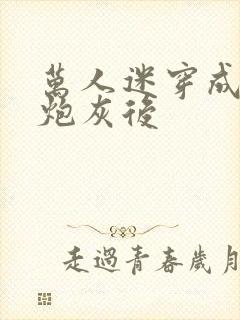 萬人迷穿成
炮灰後
走過青春歲月